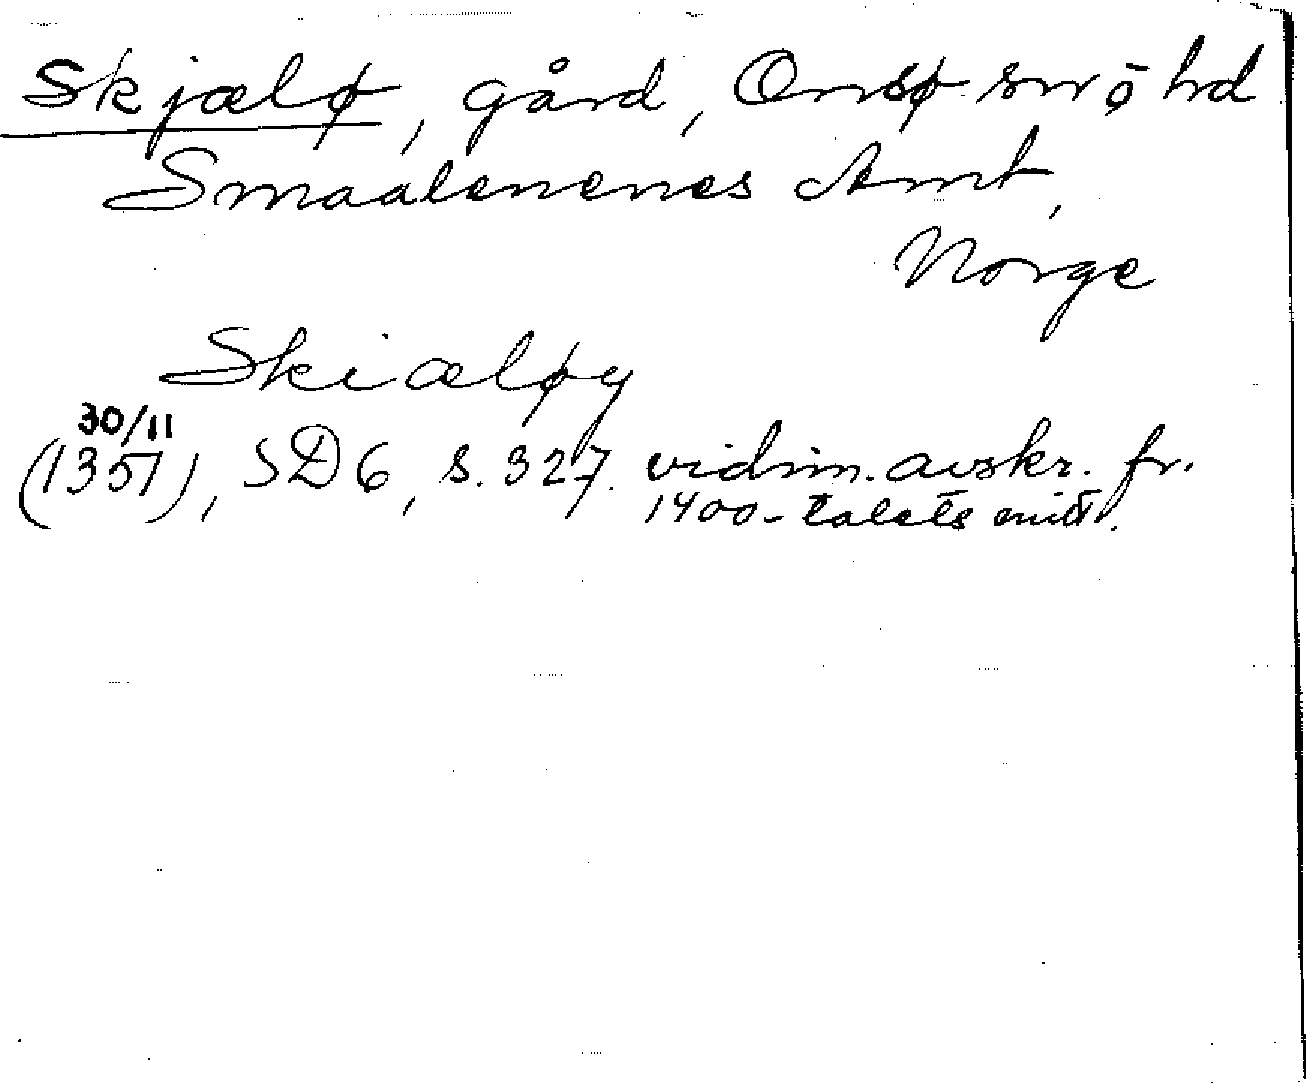 Skjælø, gård, Onsø sn ō hd
Smaalenenes Amt,
Norge
Skiæløy
30/11
(1351), SD 6, s. 327. vidim. avskr. fr.
1400-talets mitt.